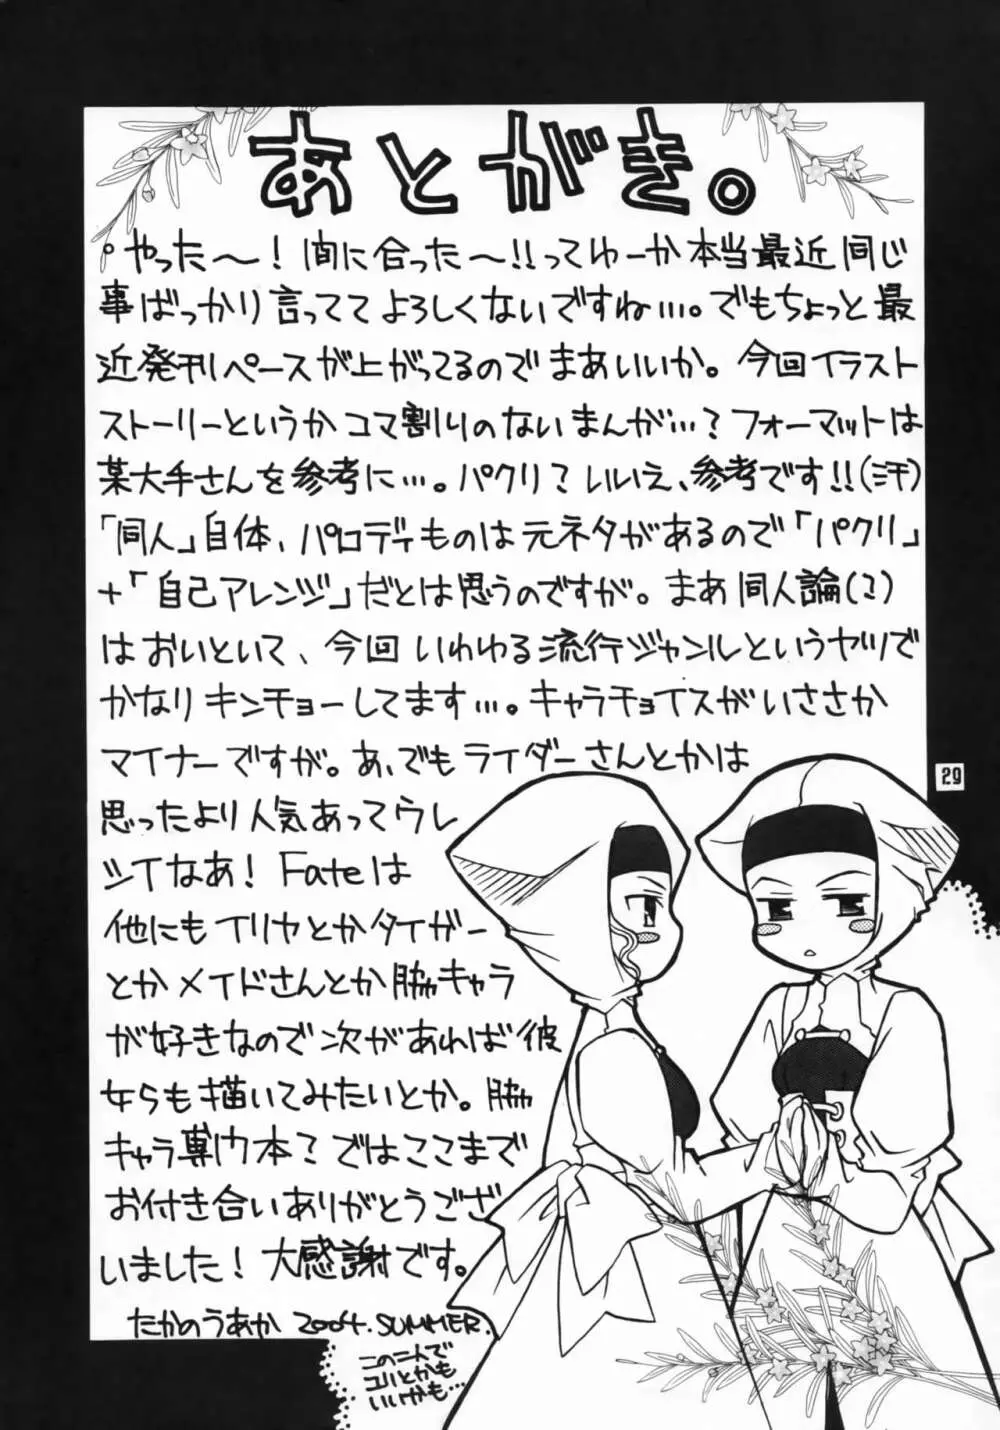 あとがき。
やった〜！間に合った〜!!ってゆーか本当最近同じ
事ばっかり言っててよろしくないですね…。でもちょっと最
近発刊ペースが上がってるのでまあいいか。今回イラスト
ストーリーというかコマ割りのないまんが…?フォーマットは
某大手さんを参考に…。パクリ?いいえ、参考です!!(汗)
「同人」自体、パロディものは元ネタがあるので「パクリ」
+「自己アレンジ」だとは思うのですが。まあ同人論(?)
はおいといて、今回いわゆる流行ジャンルというヤツで
かなりキンチョーしてます…。キャラチョイスがいささか
マイナーですが。あ、でもライダーさんとかは
思ったより人気あってウレ
シイなあ！Fateは
他にもイリヤとかタイガー
とかメイドさんとか脇キャラ
が好きなので次があれば彼
女らも描いてみたいとか。脇
キャラ専門本?ではここまで
お付き合いありがとうござ
いました！大感謝です。
たかのうあか 2004.SUMMER.
この二人で
ユリとかも
いいかも…
29